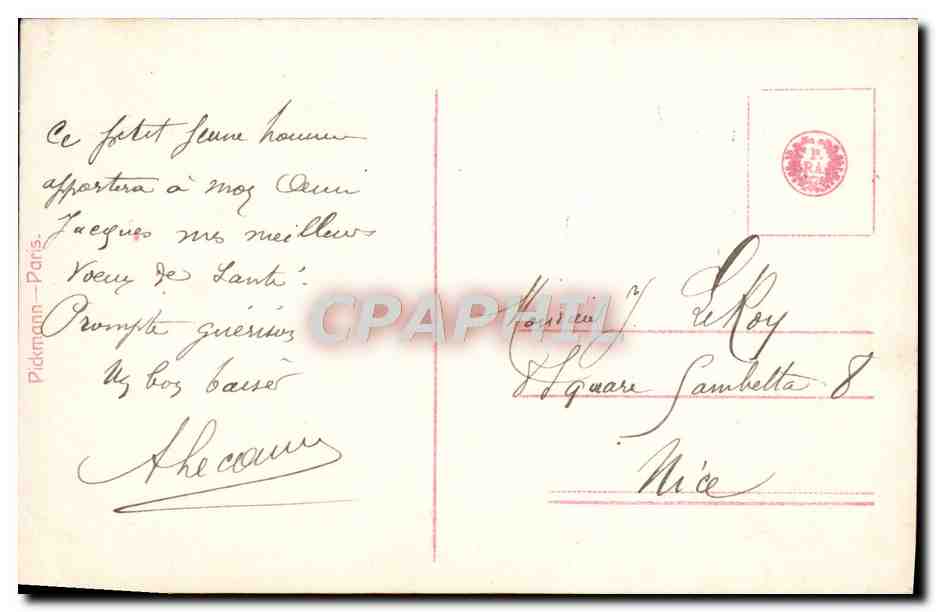 Ce petit jeune homme
apportera à mon ami
Jacques mes meilleurs
Voeux de Santé.
Prompte guérison
Un bon baiser
Pickmann—Paris.
CPAPHIL
P.
PA.
Monsieur J. LeRoy
8 Square Gambetta 8
Nice